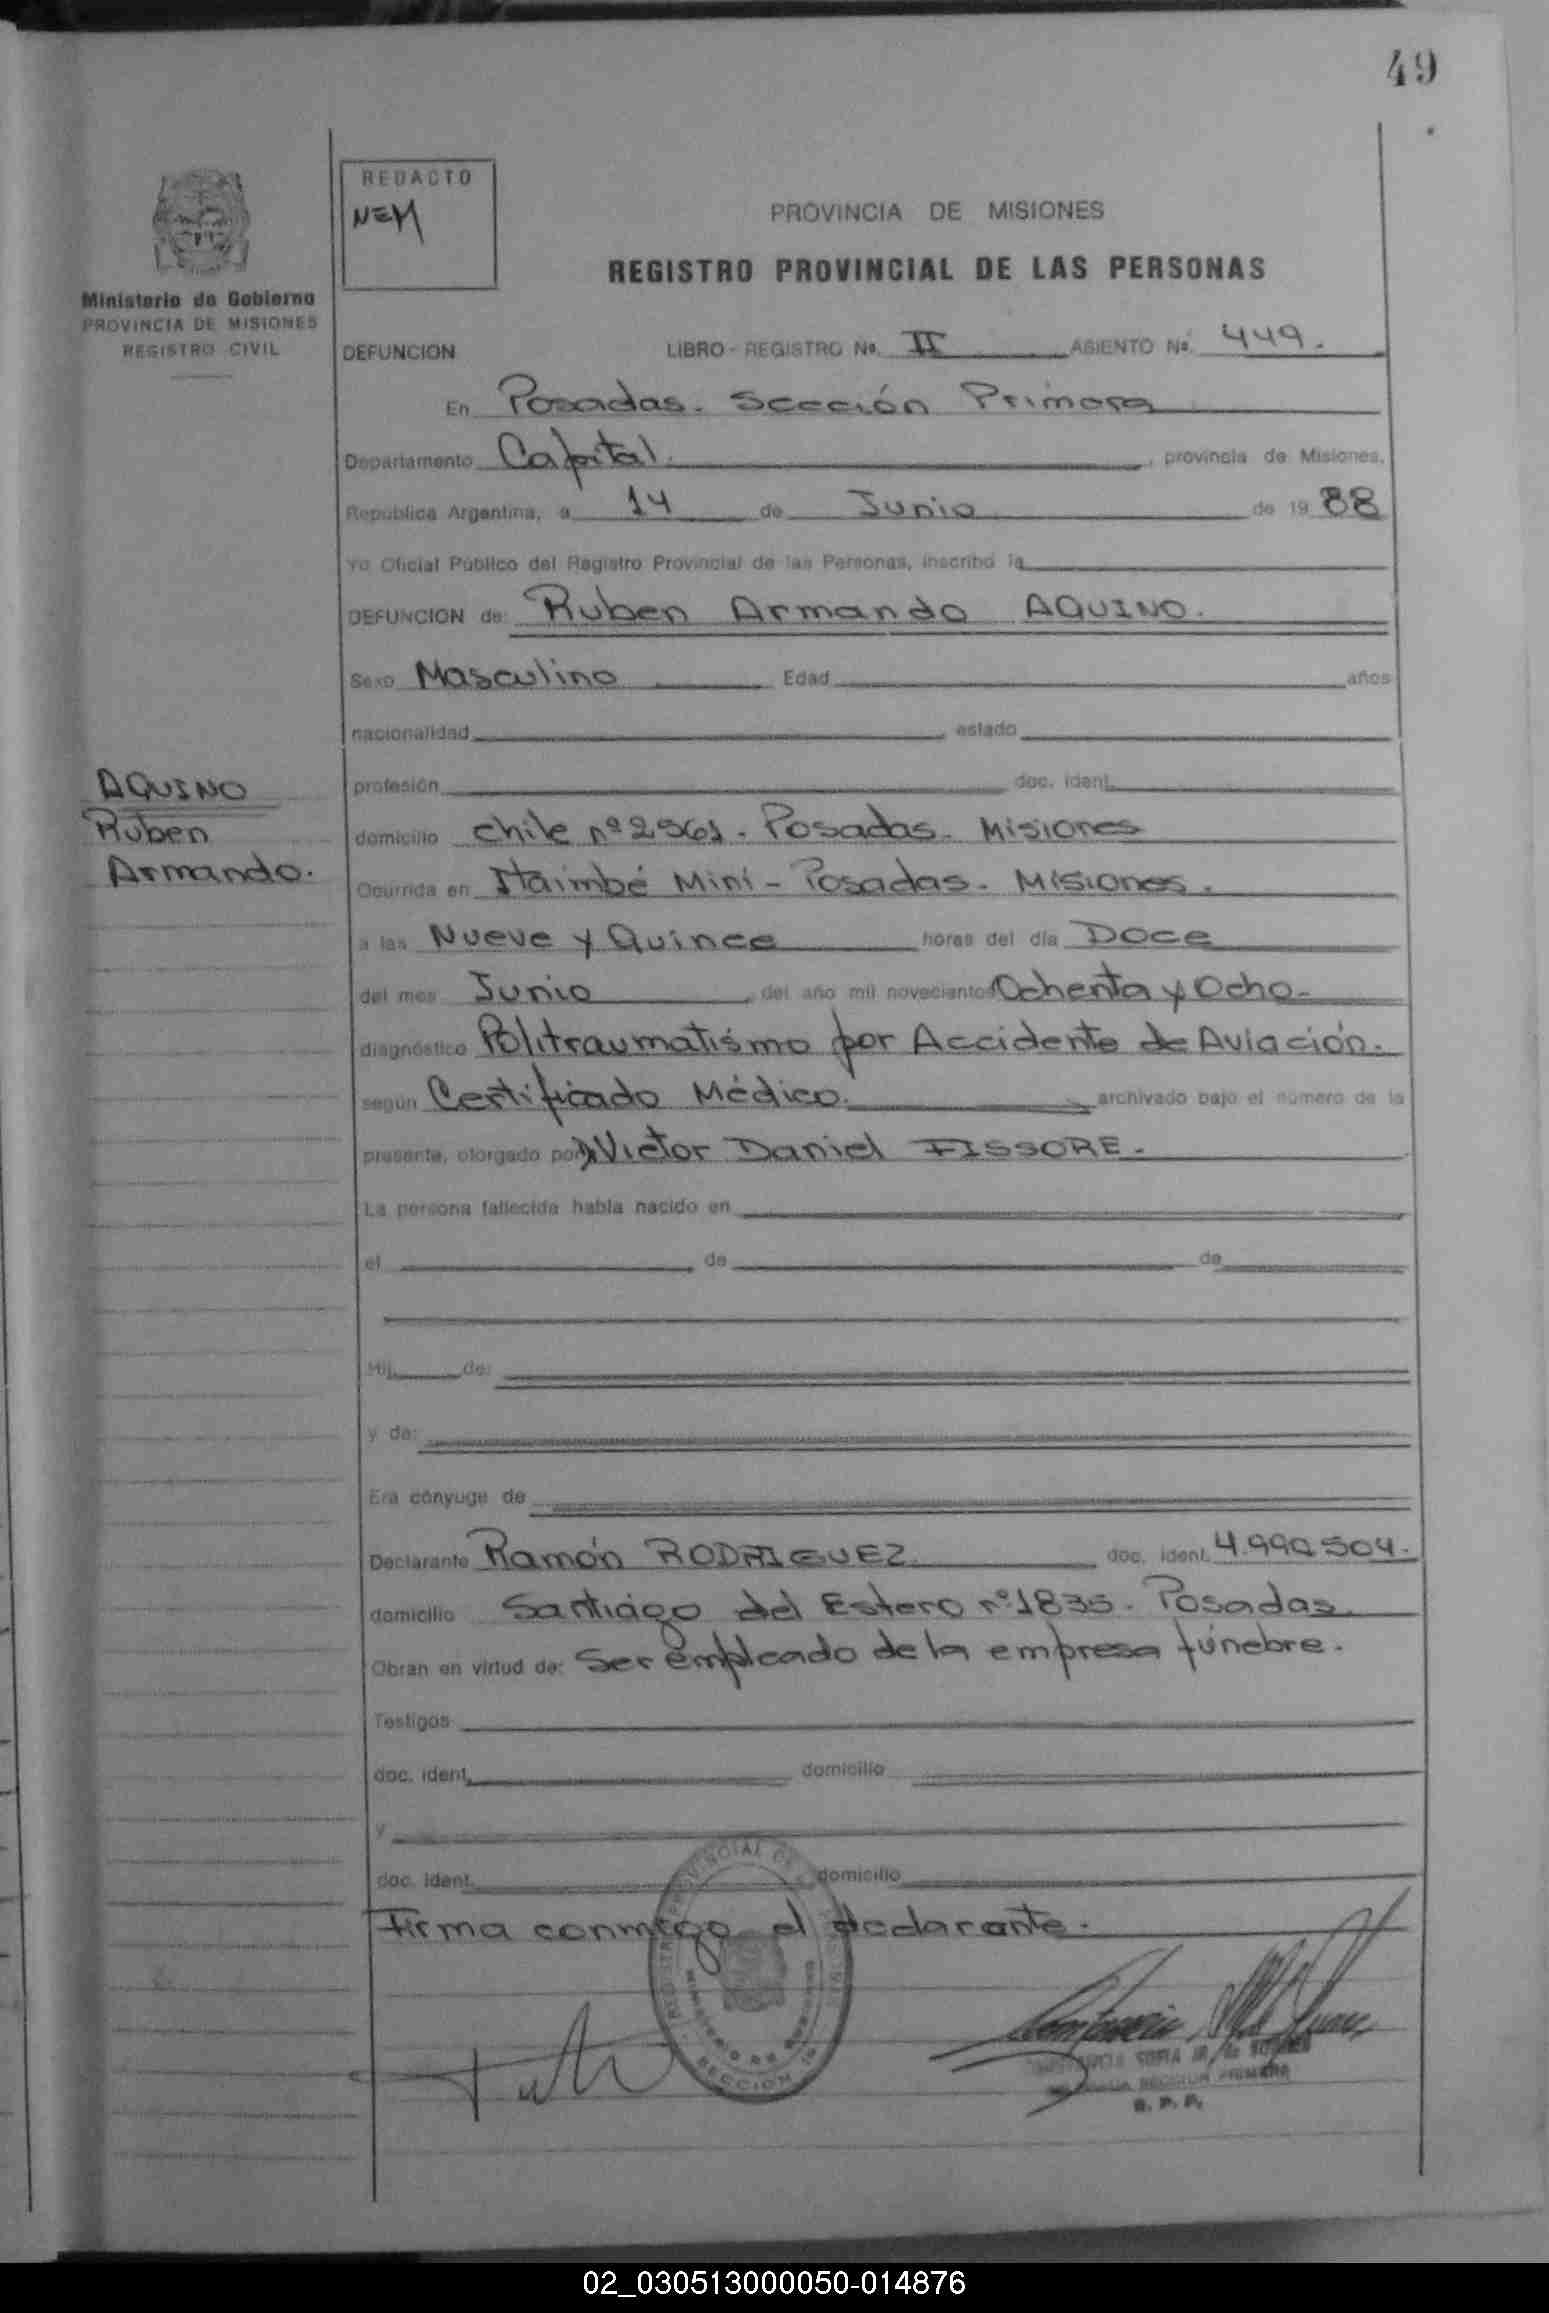 49
REDACTO
NEM
Ministerio de Gobierno
PROVINCIA DE MISIONES
REGISTRO CIVIL
PROVINCIA DE MISIONES
REGISTRO PROVINCIAL DE LAS PERSONAS
DEFUNCION LIBRO - REGISTRO Nº. II ASIENTO Nº. 449.
En Posadas. Sección Primera
Departamento Capital. , provincia de Misiones,
República Argentina, a 14 de Junio de 19 88
Yo Oficial Público del Registro Provincial de las Personas, inscribo la
DEFUNCION de: Ruben Armando AQUINO.
Sexo Masculino Edad años
nacionalidad , estado
AQUINO
Ruben
Armando.
profesión doc. ident.
domicilio Chile nº 2561. Posadas. Misiones
Ocurrida en Itaimbé Miní - Posadas. Misiones.
a las Nueve y Quince horas del día Doce
del mes Junio , del año mil novecientos Ochenta y Ocho.
diagnóstico Politraumatismo por Accidente de Aviación.
según Certificado Médico. archivado bajo el número de la
presente, otorgado por Dr Victor Daniel FISSORE.
La persona fallecida había nacido en
el de de
Hij de:
y de:
Era cónyuge de
Declarante Ramón RODRIGUEZ. doc. ident. 4.990.504.
domicilio Santiágo del Estero nº 1835. Posadas.
Obran en virtud de: Ser empleado de la empresa fúnebre.
Testigos
doc. ident. domicilio
y
doc. ident. domicilio
Firma conmigo el declarante.
REGISTRO PROVINCIAL DE
SECCION 1ª
SOFIA
SECCION PRIMERA
R. P. P.
02_030513000050-014876